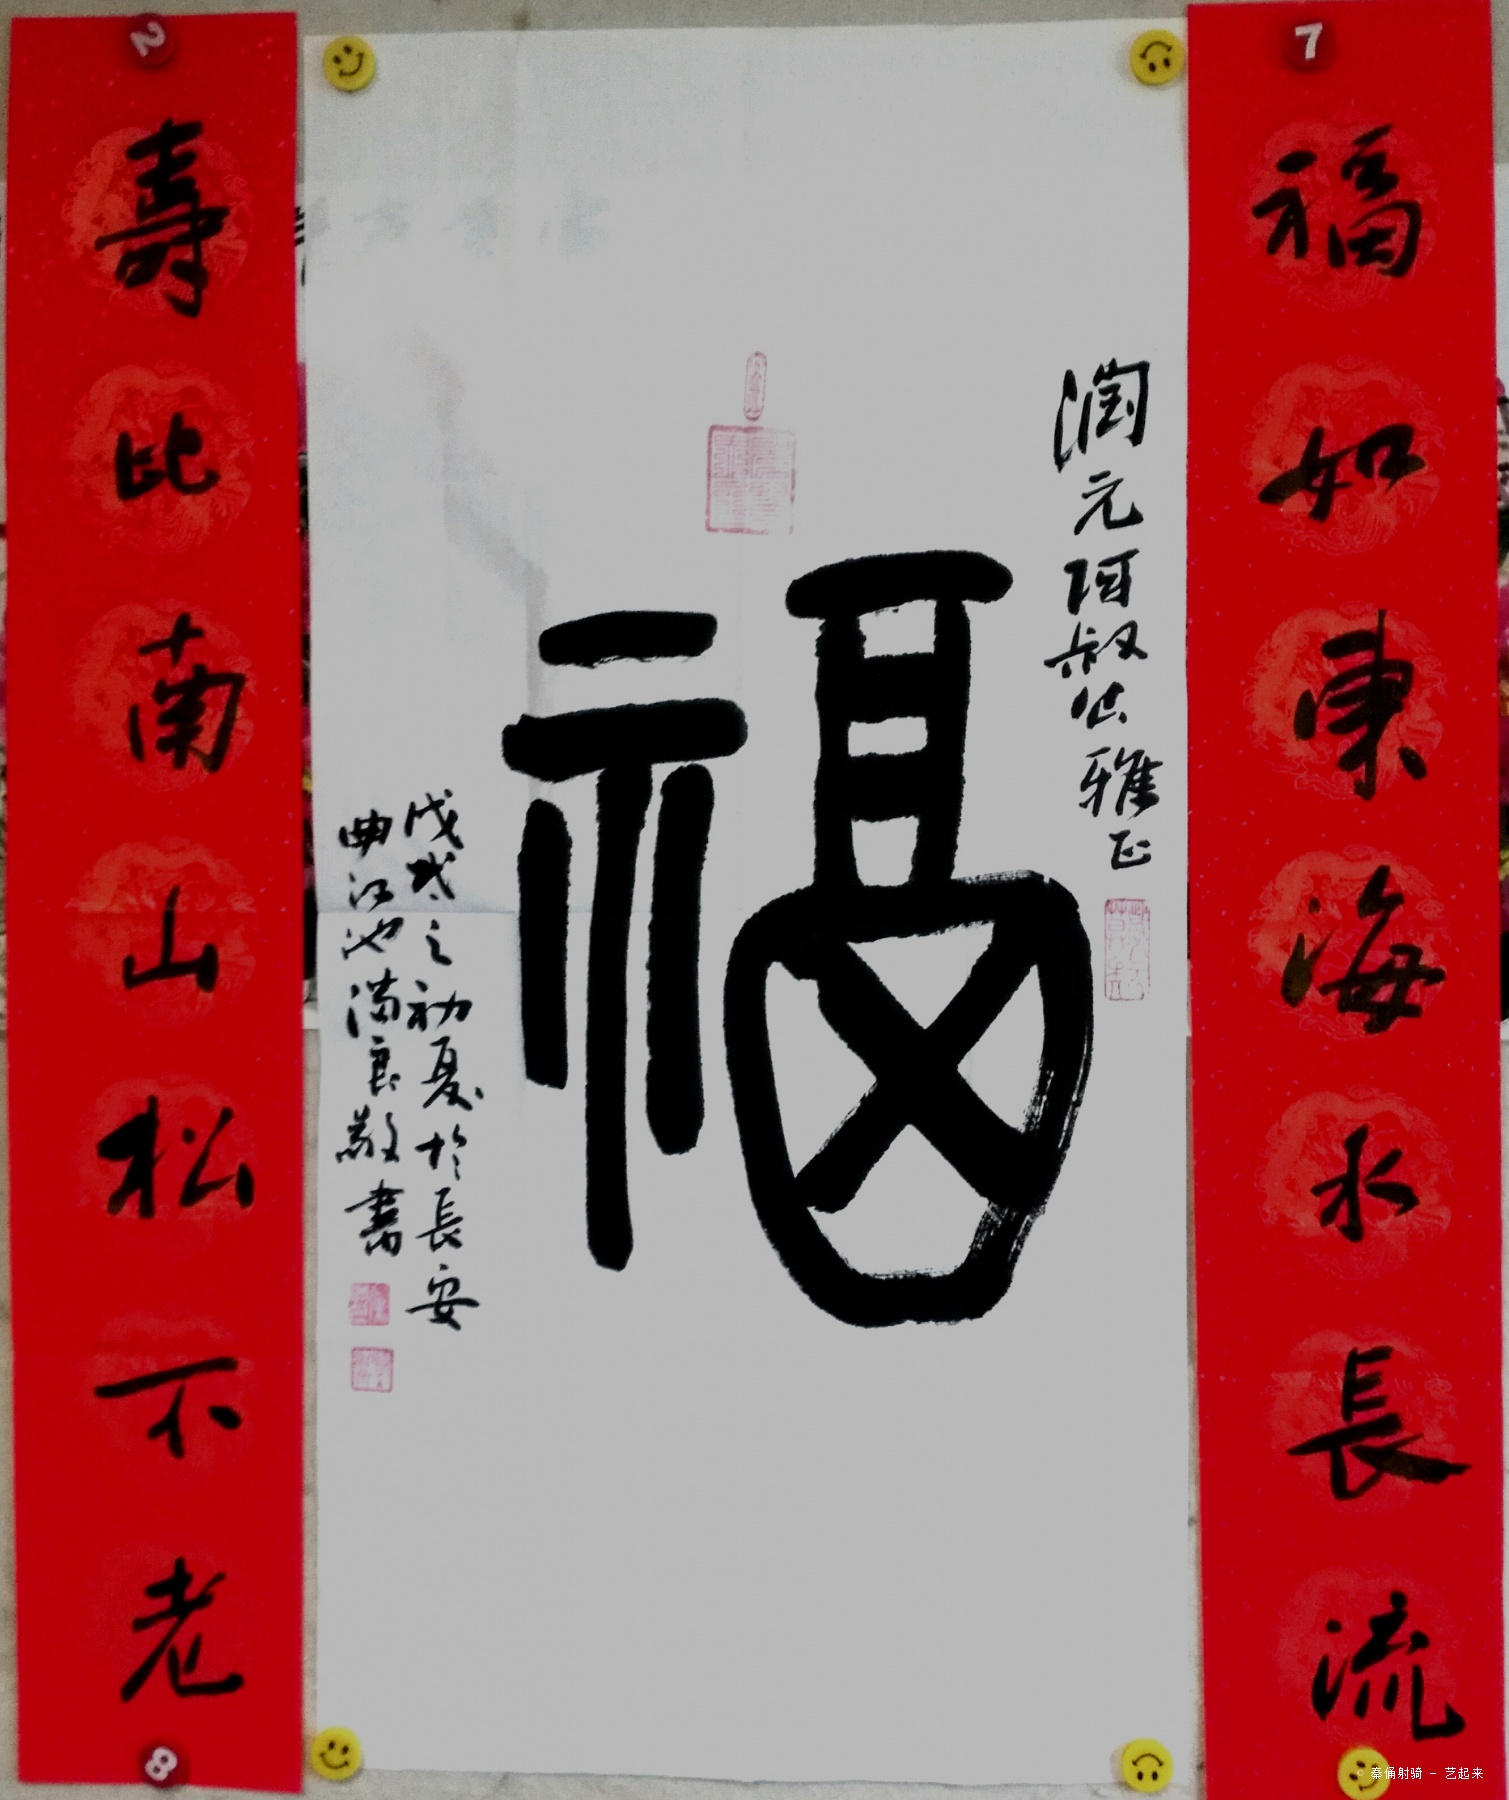 福如東海水長流
福
潤元阿叔公雅正
戊戌之初夏於長安
曲江池满良敬書
壽比南山松不老
2
7
8
秦俑射骑 - 艺起来